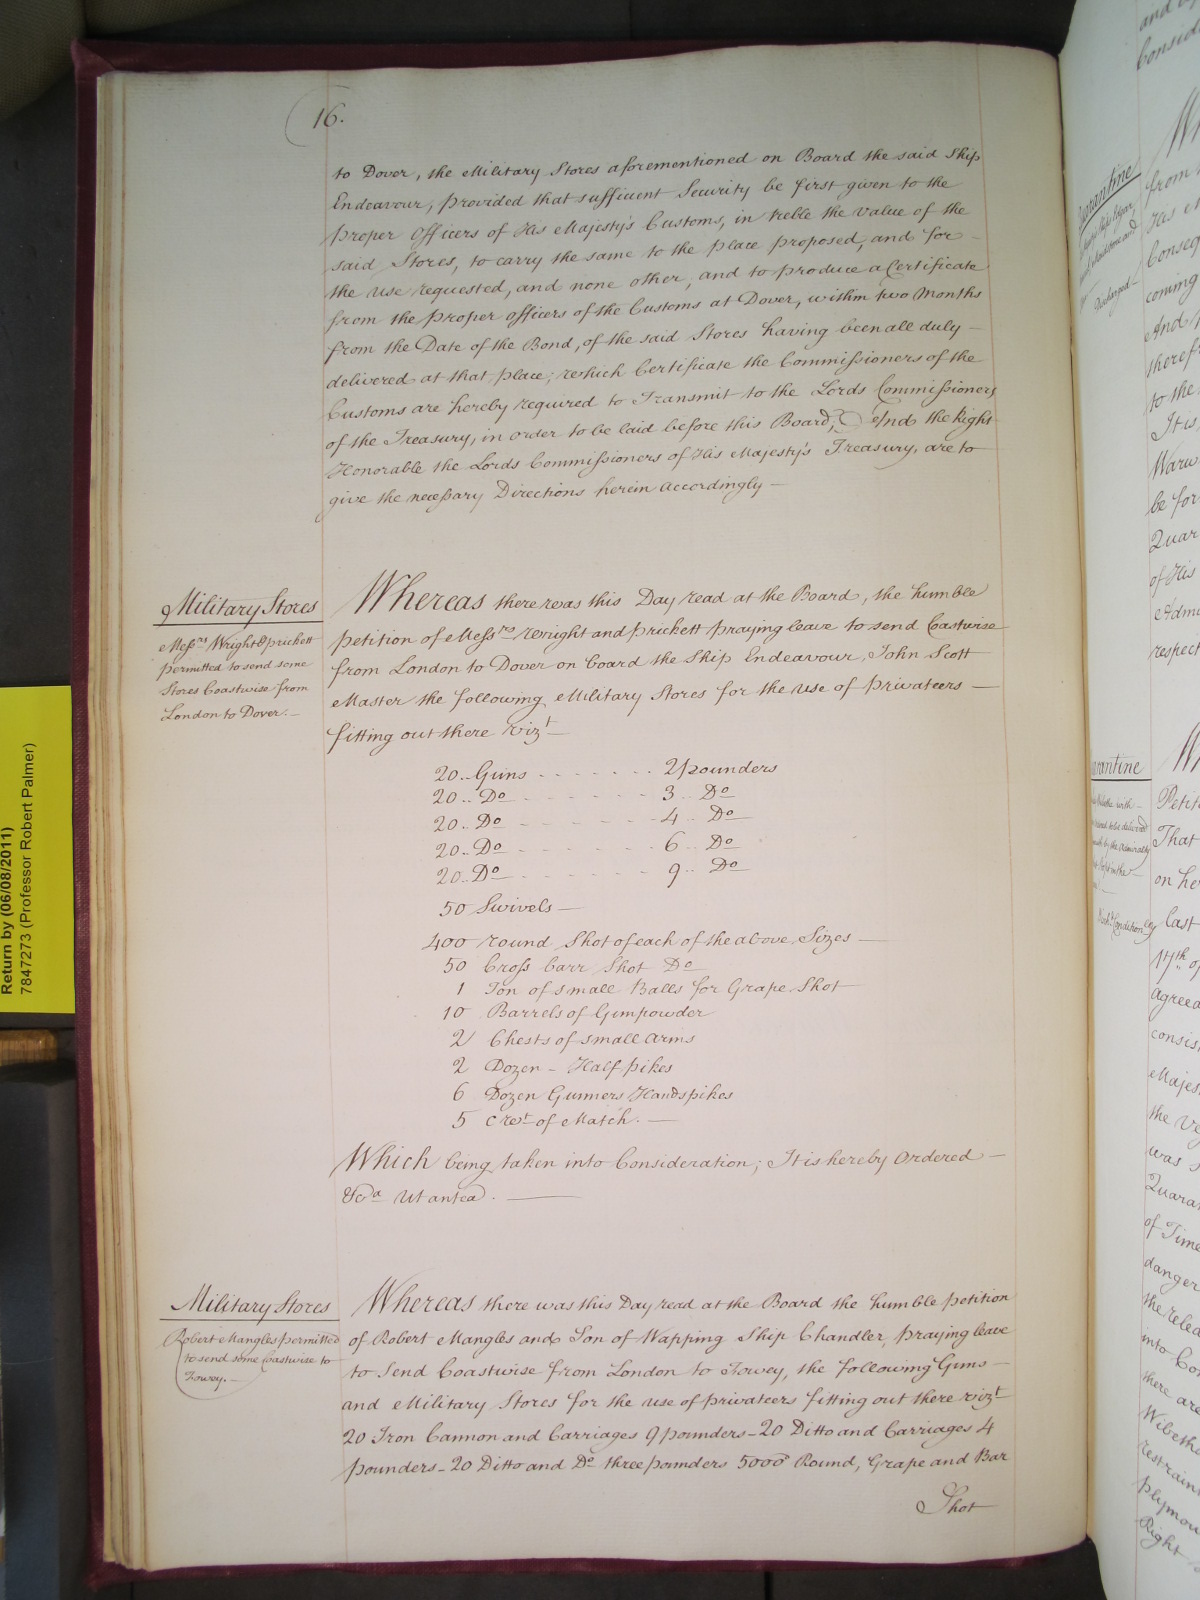 16.
to Dover, the Military Stores aforementioned on Board the said Ship
Endeavour, provided that sufficient Security be first given to the
proper Officers of His Majesty's Customs, in treble the value of the
said Stores, to carry the same to the place proposed, and for
the use requested, and none other, and to produce a Certificate
from the proper officers of the Customs at Dover, within two Months
from the Date of the Bond, of the said Stores having been all duly
delivered at that place; which Certificate the Commissioners of the
Customs are hereby required to Transmit to the Lords Commissioners
of the Treasury, in order to be laid before this Board, And the Right
Honorable the Lords Commissioners of His Majesty's Treasury, are to
give the necessary Directions herein accordingly —
Military Stores
Messrs Wright & prickett
permitted to send some
Stores Coastwise from
London to Dover. —
Whereas there was this Day read at the Board, the humble
petition of Messrs Wright and prickett praying leave to send Coastwise
from London to Dover on board the Ship Endeavour, John Scott
Master the following Military Stores for the use of privateers —
fitting out there vizt —
20.. Guns - - - - - - - 2 pounders
20.. Do - - - - - - - 3.. Do
20.. Do - - - - - - - 4.. Do
20.. Do - - - - - - - 6.. Do
20.. Do - - - - - - - 9.. Do
50 Swivels —
400 round Shot of each of the above Sizes —
50 Cross barr Shot Do
1 Ton of small Balls for Grape Shot
10 Barrels of Gunpowder
2 Chests of small arms
2 Dozen - Half pikes
6 Dozen Gunners Handspikes
5 Cwt of Match. —
Which being taken into Consideration; It is hereby Ordered —
&ca Ut antea. —
Military Stores
Robert Mangles permitted
to send some Coastwise to
Fowey. —
Whereas there was this Day read at the Board the humble petition
of Robert Mangles and Son of Wapping Ship Chandler, praying leave
to Send Coastwise from London to Fowey, the following Guns —
and Military Stores for the use of privateers fitting out there vizt
20 Iron Cannon and Carriages 9 pounders - 20 Ditto and Carriages 4
pounders - 20 Ditto and Do three pounders 5000 Round, Grape and Bar
Shot
Return by (06/08/2011)
7847273 (Professor Robert Palmer)